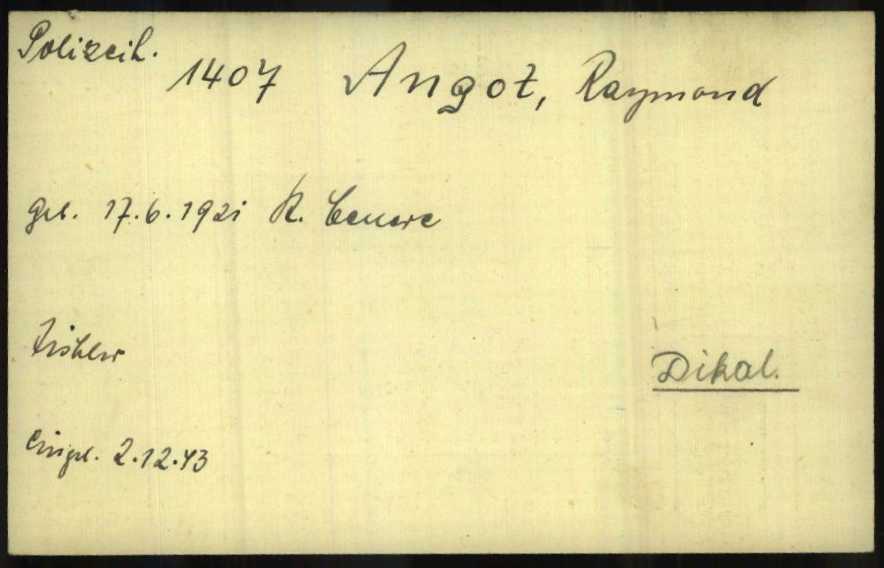 Polizeih.
1407 Angot, Raymond
geb. 17.6.1921 R.
Tischler
Dikal.
Eingel. 2.12.43